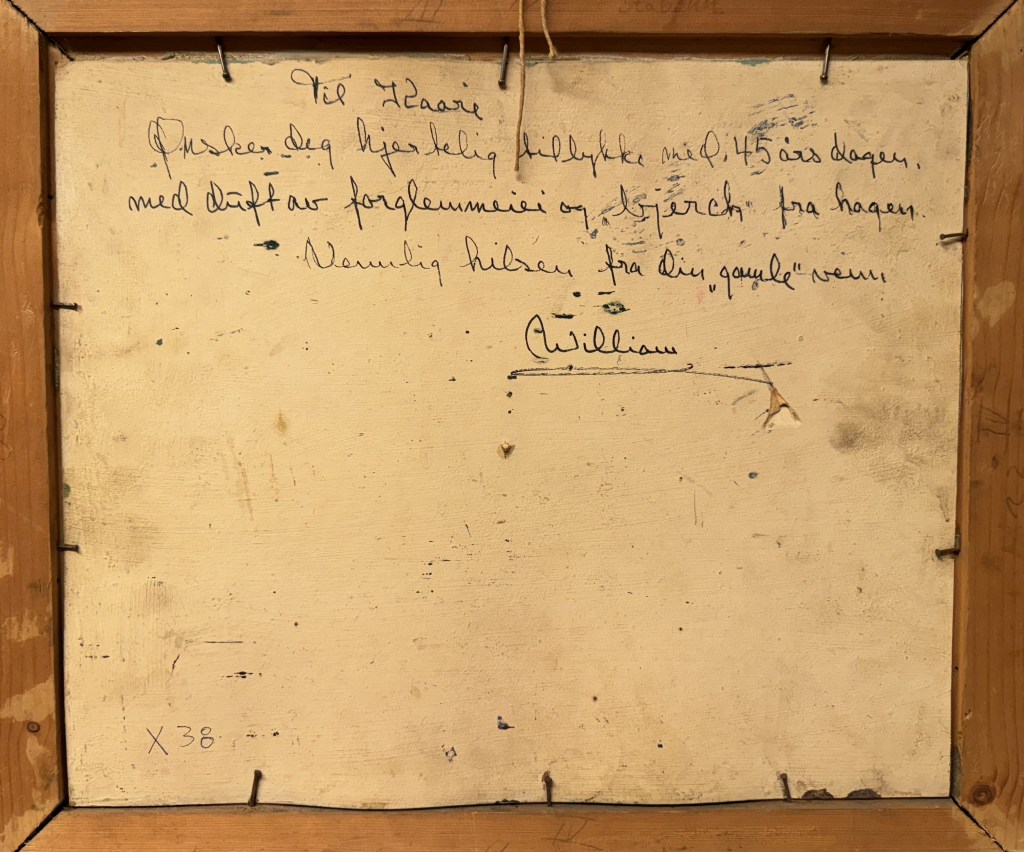 Til Kaare
Ønsker deg hjertelig tillykke med 45 års dagen.
med duft av forglemmeiei og „bjerch" fra hagen.
Vennlig hilsen fra din „gamle" venn
William
X 38
IV